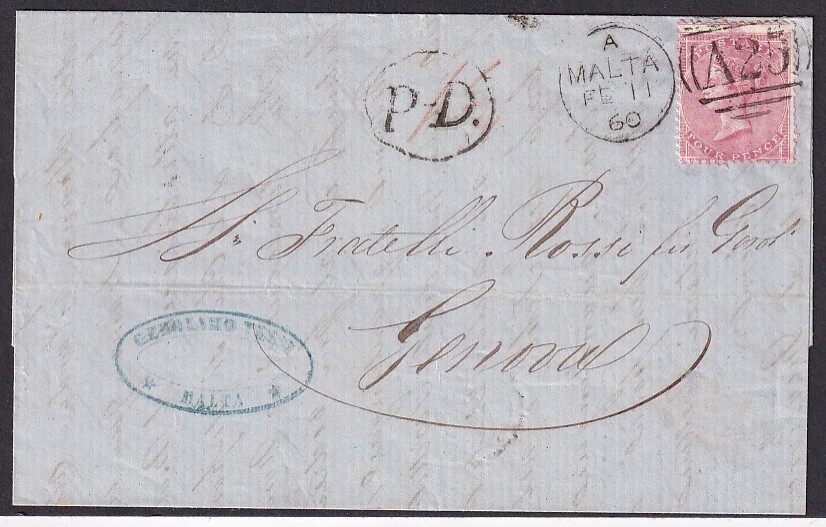 A
MALTA
FE 11
60
A25
POSTAGE
FOUR PENCE
P.D.
Sri. Fratelli Rossi fu Gerol.
Genova
GEROLAMO TESSI
MALTA